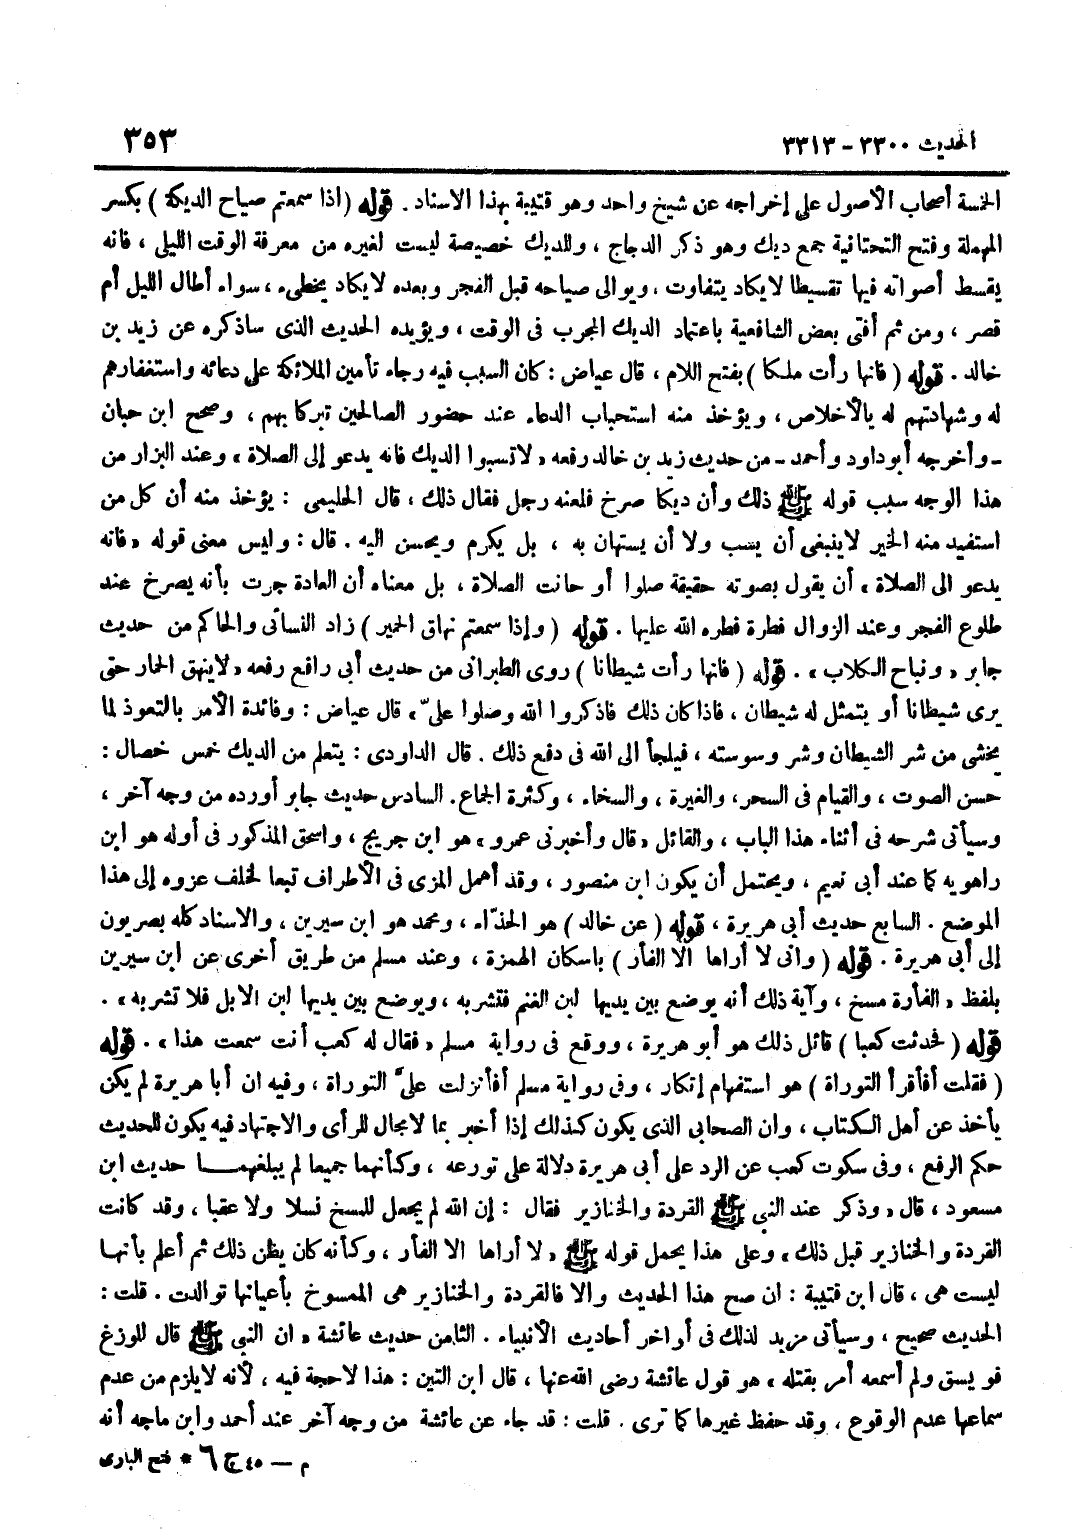 الحديث ٣٣٠٠ - ٣٣١٣ ٣٥٣
الخمسة أصحاب الأصول على إخراجه عن شيخ واحد وهو قتيبة بهذا الاسناد . قوله ( اذا سمعتم صياح الديكة ) بكسر
المهملة وفتح التحتانية جمع ديك وهو ذكر الدجاج ، وللديك خصيصة ليست لغيره من معرفة الوقت الليلى ، فانه
يقسط أصواته فيها تقسيطا لايكاد يتفاوت ، ويوالى صياحه قبل الفجر وبعده لايكاد يخطىء ، سواء أطال الليل أم
قصر ، ومن ثم أفتى بعض الشافعية باعتماد الديك المجرب فى الوقت ، ويؤيده الحديث الذى ساذكره عن زيد بن
خالد . قوله ( فانها رأت ملكا ) بفتح اللام ، قال عياض : كان السبب فيه رجاء تأمين الملائكة على دعائه واستغفارهم
له وشهادتهم له بالأخلاص ، ويؤخذ منه استحباب الدعاء عند حضور الصالحين تبركا بهم ، وصحح ابن حبان
ـ وأخرجه أبو داود وأحمد ـ من حديث زيد بن خالد رفعه « لاتسبوا الديك فانه يدعو إلى الصلاة » وعند البزار من
هذا الوجه سبب قوله ﷺ ذلك وأن ديكا صرخ فلعنه رجل فقال ذلك ، قال الحليمى : يؤخذ منه أن كل من
استفيد منه الخير لاينبغى أن يسب ولا أن يستهان به ، بل يكرم ويحسن اليه . قال : وليس معنى قوله « فانه
يدعو الى الصلاة » أن يقول بصوته حقيقة صلوا أو حانت الصلاة ، بل معناه أن العادة جرت بأنه يصرخ عند
طلوع الفجر وعند الزوال فطرة فطره الله عليها . قوله ( وإذا سمعتم نهاق الحمير ) زاد النسائى والحاكم من حديث
جابر « ونباح الكلاب » . قوله ( فانها رأت شيطانا ) روى الطبرانى من حديث أبى رافع رفعه « لاينهق الحمار حتى
يرى شيطانا أو يتمثل له شيطان ، فاذا كان ذلك فاذكروا الله وصلوا علىّ » قال عياض : وفائدة الأمر بالتعوذ لما
يخشى من شر الشيطان وشر وسوسته ، فيلجأ الى الله فى دفع ذلك . قال الداودى : يتعلم من الديك خمس خصال :
حسن الصوت ، والقيام فى السحر ، والغيرة ، والسخاء ، وكثرة الجماع . السادس حديث جابر أورده من وجه آخر ،
وسيأتى شرحه فى أثناء هذا الباب ، والقائل « قال وأخبرنى عمرو » هو ابن جريج ، واسحق المذكور فى أوله هو ابن
راهويه كما عند أبى نعيم ، ويحتمل أن يكون ابن منصور ، وقد أهمل المزى فى الأطراف تبعا لخلف عزوه إلى هذا
الموضع . السابع حديث أبى هريرة ، قوله ( عن خالد ) هو الحذّاء ، ومحمد هو ابن سيرين ، والاسناد كله بصريون
إلى أبى هريرة . قوله ( وانى لا أراها الا الفأر ) باسكان الهمزة ، وعند مسلم من طريق أخرى عن ابن سيرين
بلفظ « الفأرة مسخ ، وآية ذلك أنه يوضع بين يديها لبن الغنم فتشربه ، ويوضع بين يديها لبن الابل فلا تشربه » .
قوله ( فحدثت كعبا ) قائل ذلك هو أبو هريرة ، ووقع فى رواية مسلم « فقال له كعب أنت سمعت هذا » . قوله
( فقلت أفأقرأ التوراة ) هو استفهام إنكار ، وفى رواية مسلم أفأنزلت علىَّ التوراة ، وفيه ان أبا هريرة لم يكن
يأخذ عن أهل الكتاب ، وان الصحابى الذى يكون كذلك إذا أخبر بما لامجال للرأى والاجتهاد فيه يكون للحديث
حكم الرفع ، وفى سكوت كعب عن الرد على أبى هريرة دلالة على تورعه ، وكأنهما جميعا لم يبلغهما حديث ابن
مسعود ، قال « وذكر عند النبي ﷺ القردة والخنازير فقال : إن الله لم يجعل للمسخ نسلا ولا عقبا ، وقد كانت
القردة والخنازير قبل ذلك » وعلى هذا يحمل قوله ﷺ « لا أراها الا الفأر ، وكأنه كان يظن ذلك ثم أعلم بأنها
ليست هى ، قال ابن قتيبة : ان صح هذا الحديث والا فالقردة والخنازير هى الممسوخ بأعيانها توالدت . قلت :
الحديث صحيح ، وسيأتى مزيد لذلك فى أواخر أحاديث الأنبياء . الثامن حديث عائشة « ان النبي ﷺ قال للوزغ
فويسق ولم أسمعه أمر بقتله » هو قول عائشة رضى الله عنها ، قال ابن التين : هذا لاحجة فيه ، لأنه لايلزم من عدم
سماعها عدم الوقوع ، وقد حفظ غيرها كما ترى . قلت : قد جاء عن عائشة من وجه آخر عند أحمد وابن ماجه أنه
م — ٤٥ ج ٦ * فتح البارى